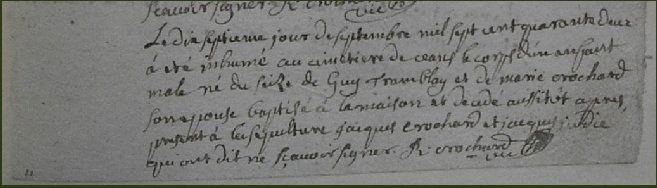 sçavoir signer R crochard
vic
Le dix septieme jour de septembre mil sept cent quarante deux
a été inhumé au cimetiere de ceans le corps d'un anfant
male né du seize de Guy Tramblay et de marie crochard
son epouse baptisé a la maison et decedé aussitôt apres
present a la sepulture jacques crochard et jacques
qui ont dit ne sçavoir signer. R. crochard
vic